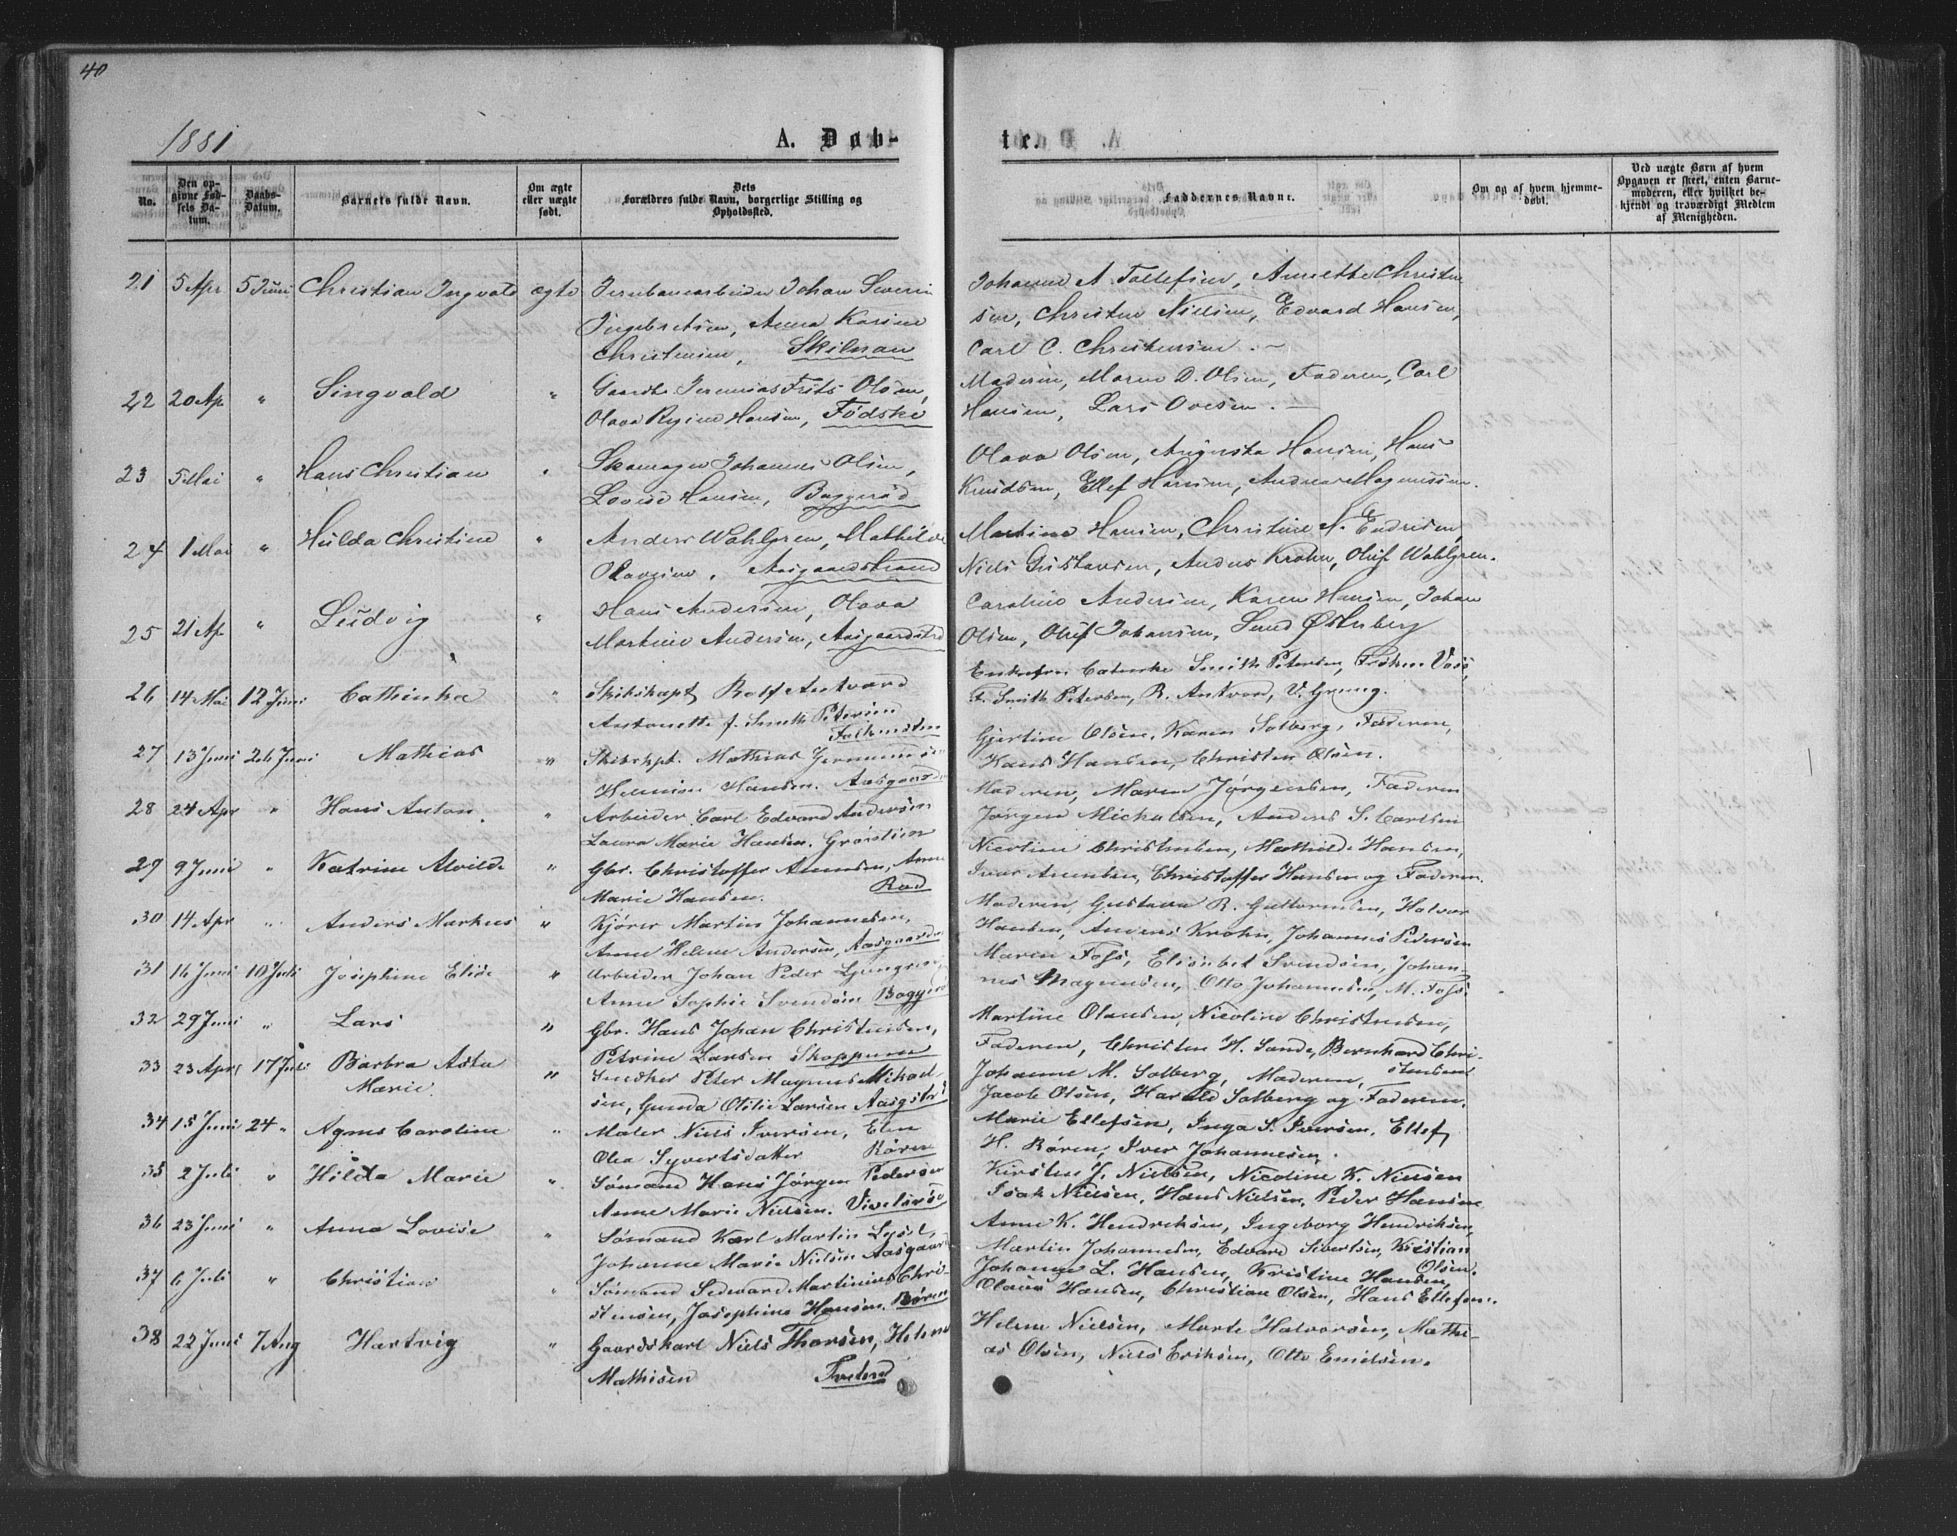 40
1881
A. Døb-
No.
Den op-
givne Fød-
sels Da-
tum.
Daabs-
Datum.
Barnets fulde Navn.
Om ægte
eller uægte
født.
Dets
Forældres fulde Navn, borgerlige Stilling og
Opholdssted.
21 5 Apr 5 Juni Christian Ingvald ægte Jernbanearbeider Johan Severin
Ingebretsen, Anna Karine
Christensen,
22 20 Ap " Singvald " Gaardbr. Jeremias Frits Olsen,
Olava Regine Hansen,
23 5 Mai " Hans Christian " Skomager Johannes Olsen,
Lovise Hansen, Baggerød
24 1 Mai " Hulda Christine " Anders Wahlgren, Mathilde
Olavesine, Aasgaardstrand
25 21 Ap " Ludvig " Hans Andersen, Olava
Martine Andersen, Aasgaardstrd
26 14 Mai 12 Juni Cathinka " Skibskapt Rolf Antvord
Antonette f. Smith Petersen
Falkensten
27 13 Juni 26 Juni Mathias " Skibskpt. Mathias
Hansen. Aasgaards
28 24 Apr " Hans Anton. " Arbeider Carl Edvard Andersen
Laura Marie Hansen.
29 9 Juni " Katrine Alvilde " Gbr. Christoffer Amundsen, Anne
Marie Hansen. Rød
30 14 Apr " Anders Markus " Kjører Martin Johannesen,
Anne Helene Andersen, Aasgaards
31 16 Juni 10 Juli Josephine Elise " Arbeider Johan Peder
Anne Sophie Svendsen Baggerø
32 29 Juni " Lars " Gbr. Hans Johan Christensen,
Petrine Larsen Skoppum
33 23 Apr 17 Juli Barbra Asta " Snedker Peter Magnus Mikael-
Marie. sen, Gunda Otilie Larsen Aasgstr
34 15 Juni 24 " Agnes Caroline " Maler Niels Iversen, Elen
Olea Syvertsdatter Røren
35 2 Juli " Hilda Marie " Sømand Hans Jørgen Pedersen
Anne Marie Nielsen.
36 23 Juni " Anna Lovise " Sømand Karl Martin
Johanne Marie Nielsen Aasgaard
37 6 Juli " Christian " Sømand Sedvard Martinius Chri-
stensen, Josephine Hansen. Røren
38 22 Juni 7 Aug Hartvig " Gaardskarl Niels Thorsen, Helene
Mathisen Tveten
te.
Faddernes Navne.
Om og af hvem hjemme-
døbt.
Ved uægte Børn af hvem
Opgaven er skeet, enten Barne-
moderen, eller hvilket be-
kjendt og troværdigt Medlem
af Menigheden.
Johanne A. Tollefsen, Annette Christen
sen, Christen Nielsen, Edvard Hansen,
Carl C. Christensen. -
Moderen, Maren D. Olsen, Faderen, Carl
Hansen, Lars Ovesen. -
Olava Olsen, Augusta Hansen, Hans
Knudsen, Ellef Hansen, Andreas Magnussen.
Martine Hansen, Christine A. Endresen
Niels Gustavsen, Anders Krohn, Oluf Wahlgren.
Caroline Andersen, Karen Hansen, Johan
Olsen, Oluf Johansen, Lund Østerberg
Enkefru Cathinka Smith Petersen, Frøken Voss,
F. Smith Petersen, R. Antvord, V. Grung.
Gjertine Olsen, Karen Solberg, Faderen,
Hans Hansen, Christen Olsen.
Moderen, Maren Jørgensen, Faderen
Jørgen Michalsen, Anders S. Carlsen
Nicoline Christensen, Mathilde Hansen,
Ivar Amundsen, Christoffer Hansen og Faderen.
Moderen, Gustava R. Guttormsen, Halvor
Hansen, Anders Krohn, Johannes Pedersen
Maren Foss, Elisabet Svendsen, Johan-
nes Magnussen, Otto Johannesen, M. Foss.
Martine Olausen, Nicoline Christensen,
Faderen, Christen H. Sande, Bernhard Chri-
stensen
Johanne M. Solberg, Moderen,
Jacob Olsen, Harald Solberg og Faderen.
Marie Ellefsen, Inga S. Iversen, Ellef
H. Røren, Iver Johannesen.
Kirsten J. Nielsen, Nicoline K. Nielsen
Isak Nielsen, Hans Nielsen, Peder Hansen
Anne K. Hendriksen, Ingeborg Hendriksen,
Martin Johannesen, Edvard Sivertsen, Kristian
Olsen.
Johanne L. Hansen, Kristine Hansen,
Olaus Hansen, Christian Olsen, Hans Ellefsen.
Helene Nielsen, Marte Halvorsen, Mathi-
as Olsen, Niels Eriksen, Otto Emilsen.